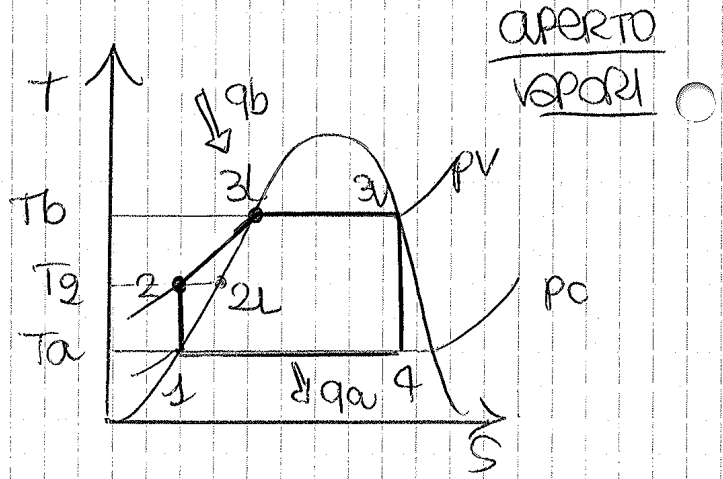 APERTO
VAPORI
T
qb
3L
3V
pv
Tb
T2
2
2L
pc
Ta
1
qa
4
S